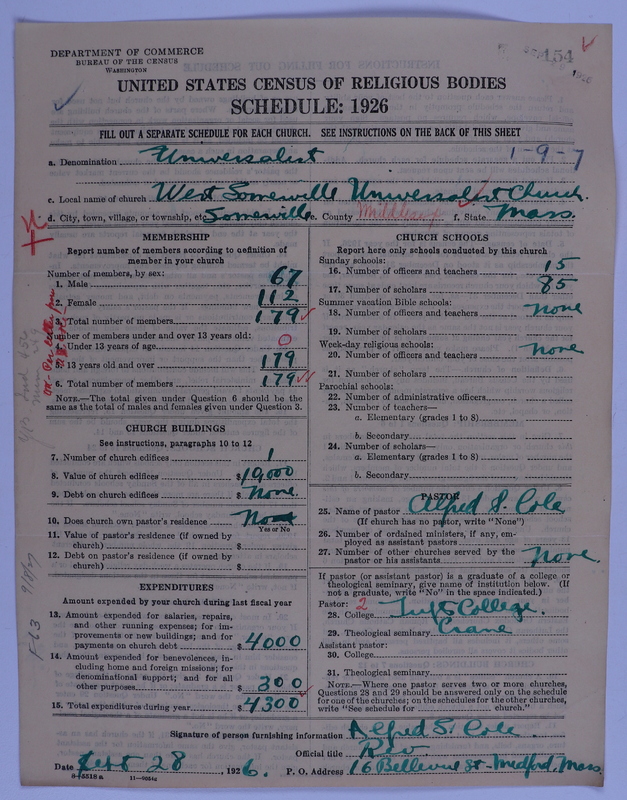 DEPARTMENT OF COMMERCE
BUREAU OF THE CENSUS
WASHINGTON
154
UNITED STATES CENSUS OF RELIGIOUS BODIES
SCHEDULE: 1926
FILL OUT A SEPARATE SCHEDULE FOR EACH CHURCH. SEE INSTRUCTIONS ON THE BACK OF THIS SHEET
a. Denomination Universalist 1-9-7
c. Local name of church West Somerville Universalist Church.
d. City, town, village, or township, etc. Somerville e. County Middlesex f. State Mass.
MEMBERSHIP
Report number of members according to definition of
member in your church
Number of members, by sex:
1. Male 67
2. Female 112
3. Total number of members 179
Number of members under and over 13 years old:
4. Under 13 years of age 0
5. 13 years old and over 179
6. Total number of members 179
NOTE.—The total given under Question 6 should be
same as the total of males and females given under Question 3.
CHURCH BUILDINGS
See instructions, paragraphs 10 to 12
7. Number of church edifices 1
8. Value of church edifices $10,000
9. Debt on church edifices $ None.
10. Does church own pastor's residence No
Yes or No
11. Value of pastor's residence (if owned by
church) $
12. Debt on pastor's residence (if owned by
church) $
EXPENDITURES
Amount expended by your church during last fiscal year
13. Amount expended for salaries, repairs,
and other running expenses; for im-
provements or new buildings; and for
payments on church debt $ 4000
14. Amount expended for benevolences, in-
cluding home and foreign missions; for
denominational support; and for all
other purposes $ 300
15. Total expenditures during year $ 4300
CHURCH SCHOOLS
Report here only schools conducted by this church
Sunday schools:
16. Number of officers and teachers 15
17. Number of scholars 85
Summer vacation Bible schools:
18. Number of officers and teachers None
19. Number of scholars
Week-day religious schools:
20. Number of officers and teachers None
21. Number of scholars
Parochial schools:
22. Number of administrative officers
23. Number of teachers—
a. Elementary (grades 1 to 8)
b. Secondary
24. Number of scholars—
a. Elementary (grades 1 to 8)
b. Secondary
PASTOR
25. Name of pastor Alfred S. Cole
(If church has no pastor, write "None")
26. Number of ordained ministers, if any, em-
ployed as assistant pastors
27. Number of other churches served by the
pastor or his assistants None.
If pastor (or assistant pastor) is a graduate of a college or
theological seminary, give name of institution below. (If
not a graduate, write "No" in the space indicated.)
Pastor: 2
28. College Tufts College.
29. Theological seminary Crane
Assistant pastor:
30. College
31. Theological seminary
NOTE.—Where one pastor serves two or more churches,
Questions 28 and 29 should be answered only on the schedule
for one of the churches; on the schedules for the other churches,
write "See schedule for church."
Signature of person furnishing information Alfred S. Cole
Official title Rev
Date Sept 28, 1926. P. O. Address 16 Bellevue St - Medford, Mass.
8-5518 a 11-9054